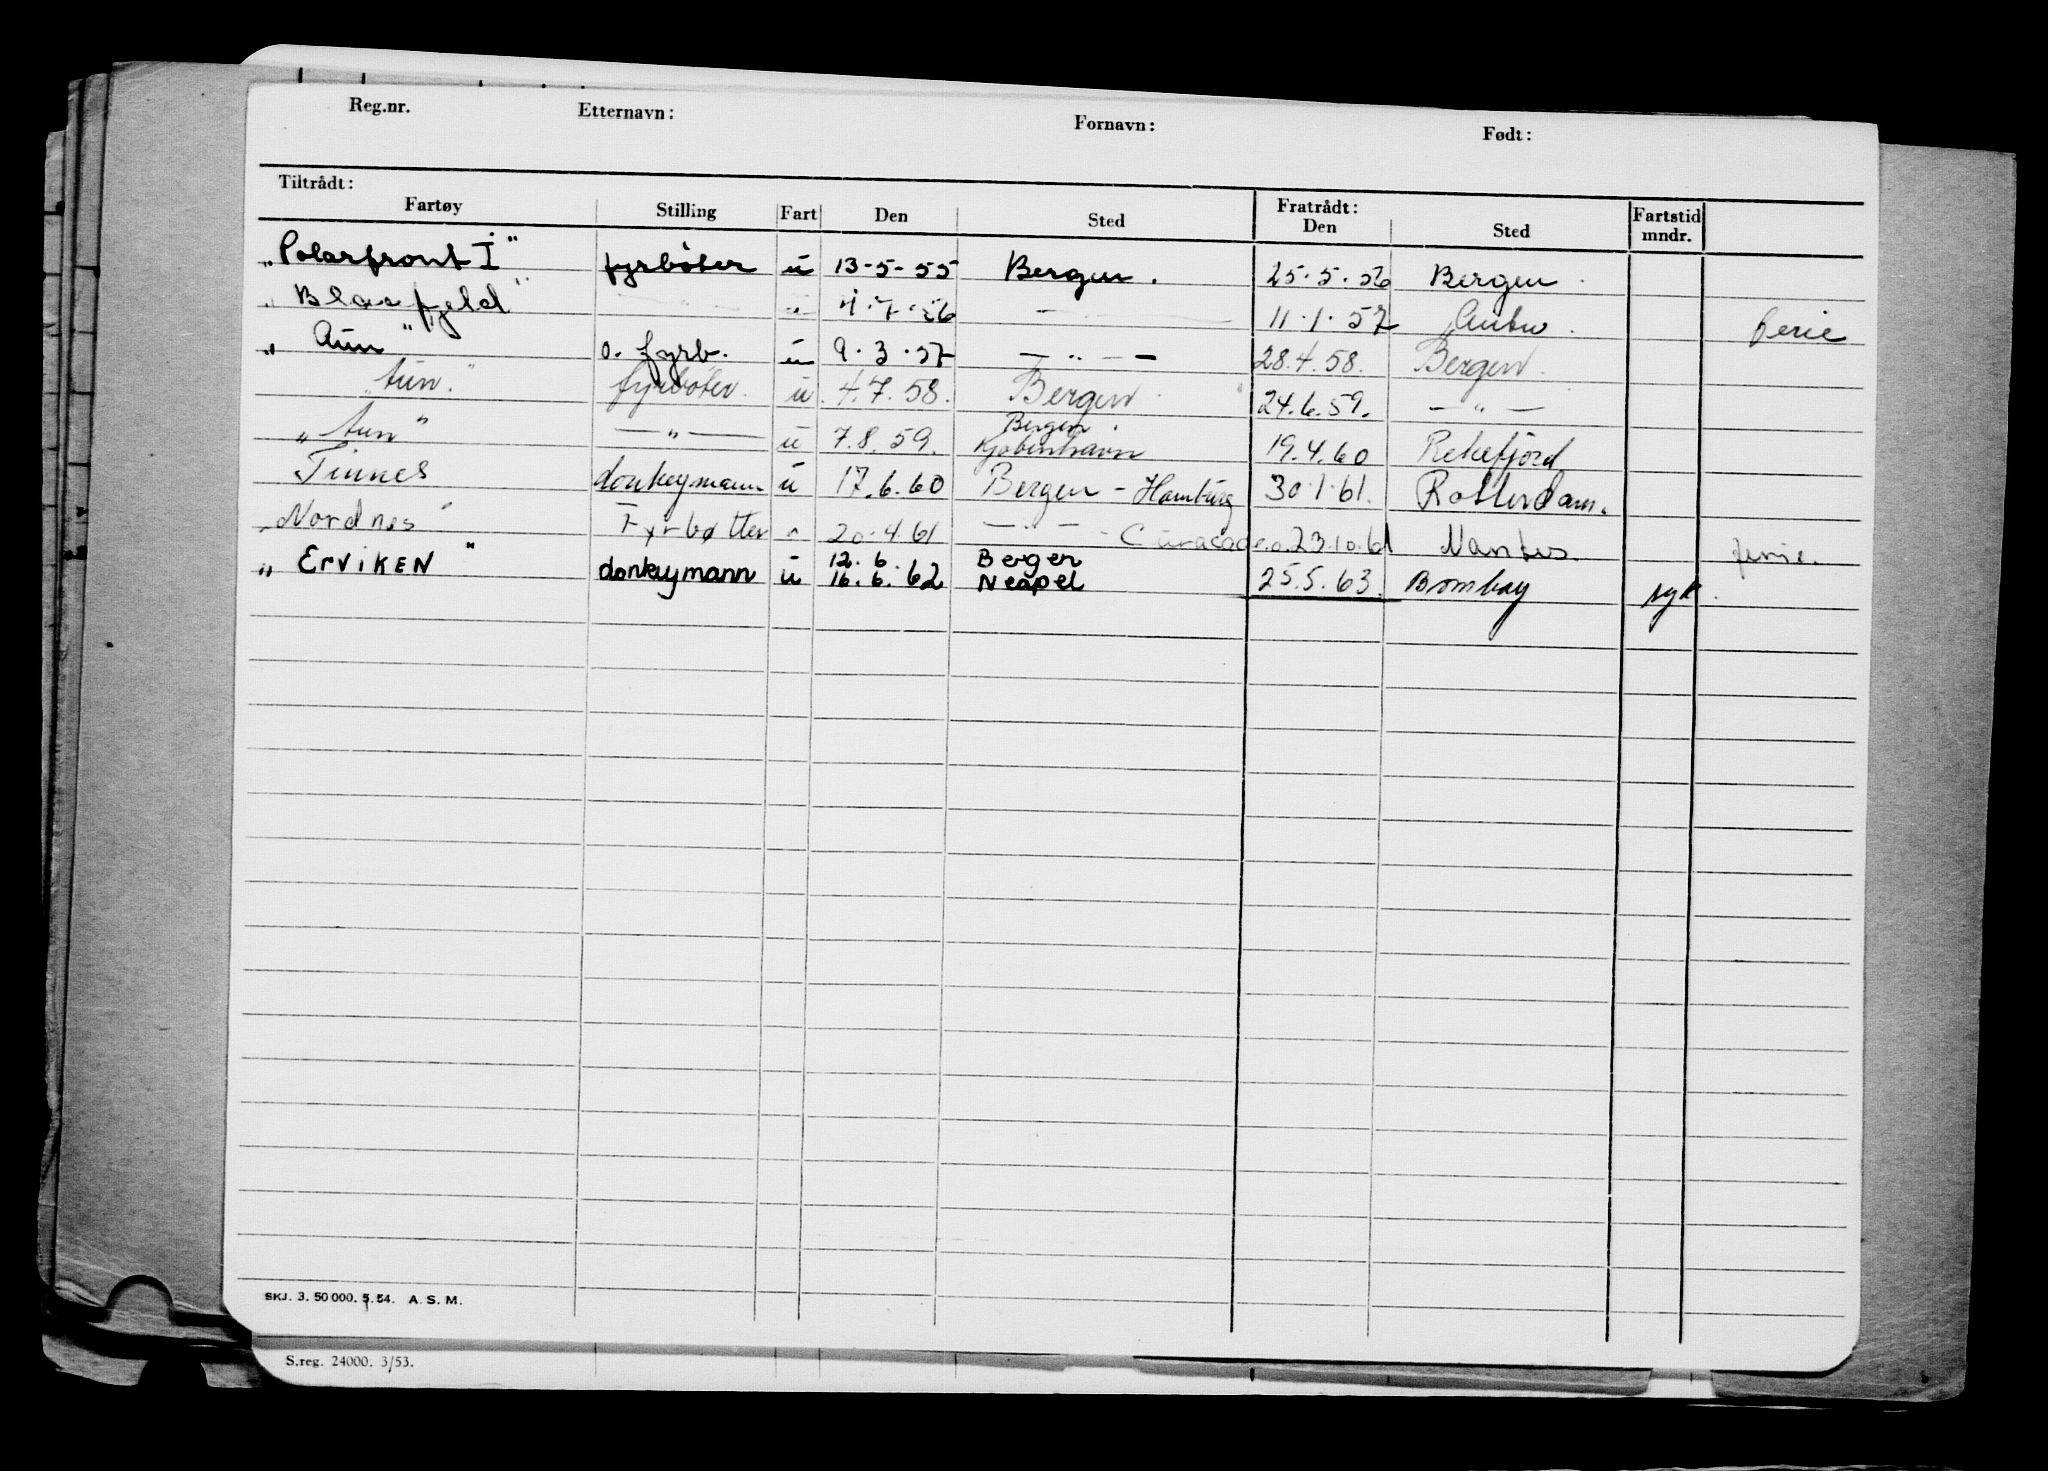 Reg.nr. Etternavn: Fornavn: Født:
Tiltrådt: Fratrådt:
Fartøy Stilling Fart Den Sted Den Sted Fartstid mndr.
„Polarfront I" fyrbøter u 13-5-55 Bergen. 25.5.56 Bergen.
„Blaafjeld" — „ — „ 4.7.56 — 11.1.57 Antw. ferie
„Aun" o. fyrb. u 9.3.57 — „ — 28.4.58. Bergen.
„Aun." fyrbøter. u. 4.7.58. Bergen. 24.6.59. — „ —
Bergen.
„Aun" — „ — u 7.8.59. Kjøbenhavn 19.4.60 Rekefjord
Tinnes donkeymann u 17.6.60 Bergen - Hamburg 30.1.61. Rotterdam.
„Nordnes" Fyrbøtter „ 20.4.61 — „ — - Curacao 23.10.61 Nantes. ferie.
12.6. Bergen
„ErviKEN" donkeymann u 16.6.62 Neapel 25.5.63. Bombay syk.
SKJ. 3. 50 000. 5. 54. A. S. M.
S.reg. 24000. 3/53.